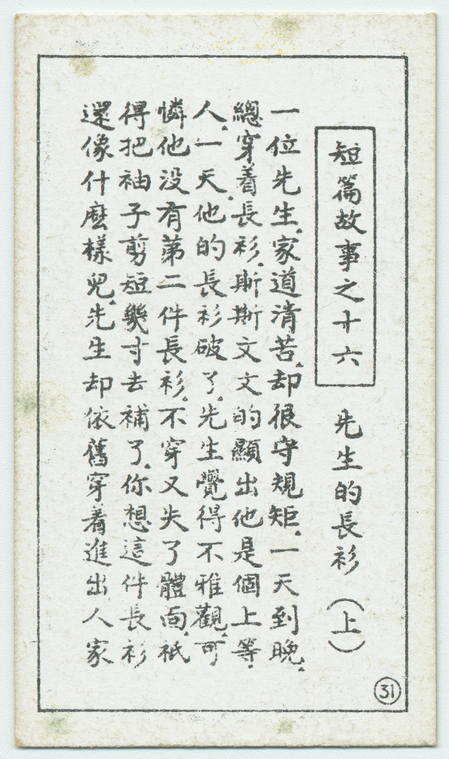 短篇故事之十六 先生的長衫（上）
一位先生.家道清苦.却很守規矩.一天到晚.
總穿着長衫.斯斯文文的顯出他是個上等.
人.一天.他的長衫破了.先生覺得不雅觀.可
憐他没有第二件長衫.不穿又失了體面.祇
得把袖子剪短幾寸去補了.你想這件長衫
還像什麽樣兒.先生却依舊穿着進出人家
31